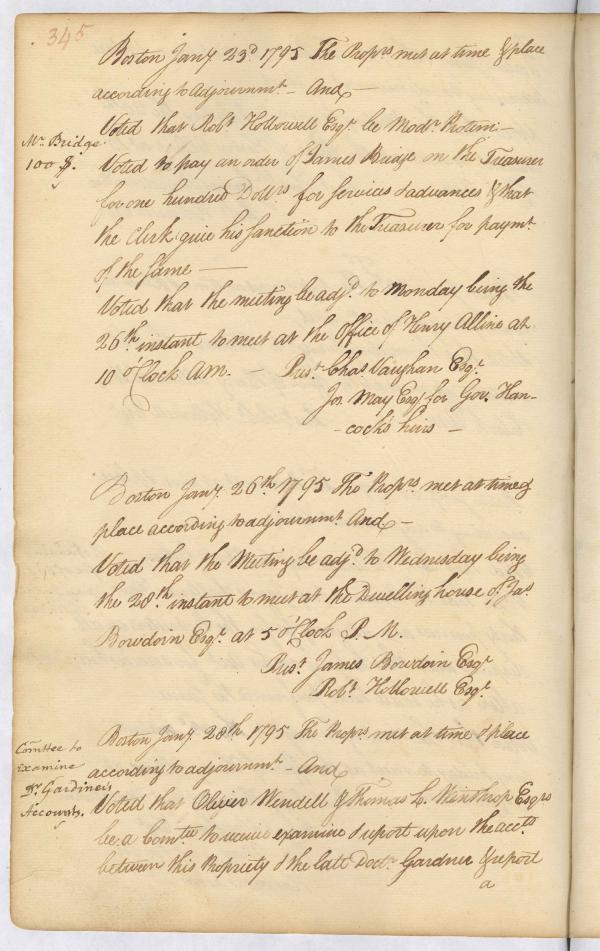 345
Boston Jany. 23d 1795 The Proprs met at time & place
according to adjournmt - And -
Voted that Robt Hollowell Esqr. be Modr. Protem -
Mr. Bridge
100 $.
Voted to pay an order of James Bridge on the Treasurer
for one hundred Dollrs for services & advances & that
the Clerk give his sanction to the Treasurer for paymt.
of the same -
Voted that the meeting be adjd. to Monday being the
26th. instant to meet at the Office of Henry Alline at
10 o'Clock AM. - Prest. Chas Vaughan Esqr.
Jos. May Esqr for Gov. Han-
- cock's heirs -
Boston Jany. 26th. 1795 The Proprs. met at time &
place according to adjournmt. And -
Voted that the Meeting be adjd. to Wednesday being
the 28th. instant to meet at the Dwelling house of Jas.
Bowdoin Esqr. at 5 o'Clock P.M.
Prest. James Bowdoin Esqr.
Robt. Hollowell Esqr.
Boston Jany. 28th. 1795 The Proprs met at time & place
according to adjournmt. - And
Comttee to
Examine
Dr. Gardiner's
Accounts.
Voted that Oliver Wendell & Thomas L. Winthrop Esqrs
be a Comtee to receive examine & report upon the accts.
between this Propriety & the late Doctr. Gardner & report
a